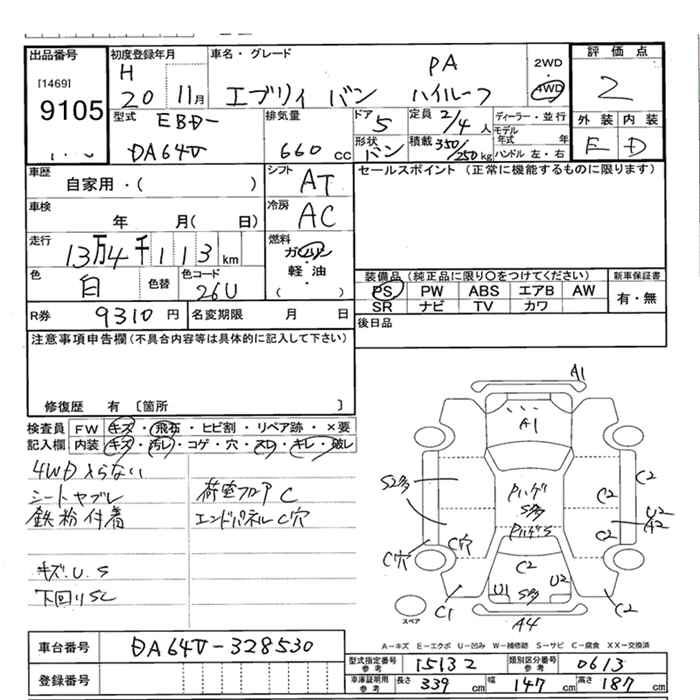 出品番号 初度登録年月 車名・グレード 評価点
[1469] H PA 2WD
9105 20 11月 エブリイ バン ハイルーフ 4WD 2
型式 EBD- 排気量 ドア 定員 2/4人 ディーラー・並行 外装 内装
DA64V 660cc 5 モデル年式 年
形状 バン 積載 350/250kg ハンドル 左・右 E D
車歴 自家用・( ) シフト AT セールスポイント (正常に機能するものに限ります)
車検 年 月( 日) 冷房 AC
走行 13万4千113km 燃料 ガソリン
軽油
( ・ )
色 白 色替 色コード 26U
装備品 (純正品に限り○をつけてください) 新車保証書
PS PW ABS エアB AW 有・無
SR ナビ TV カワ
R券 9310円 名変期限 月 日 後日品
注意事項申告欄 (不具合内容等は具体的に記入して下さい)
修復歴 有 〔箇所 〕
検査員 FW キズ・飛石・ヒビ割・リペア跡・×要
記入欄 内装 キズ・汚レ・コゲ・穴・スレ・キレ・破レ
4WD入らない
シートヤブレ 荷室フロア C
鉄粉付着 エンドパネルC穴
キズ.U.S
下回りSC
A1
A1
S2多 Pハゲ C2 C2
S多 U2
Pハゲ S A2
C穴 C穴 C2 C2
U1 U2
S多
C1 C2
スペア A4
A-キズ E-エクボ U-凹み W-補修跡 S-サビ C-腐食 XX-交換済
車台番号 DA64V-328530
登録番号
型式指定番号 参考 15132 類別区分番号 参考 0613
車庫証明用 参考 長さ 339cm 幅 147cm 高さ 187cm